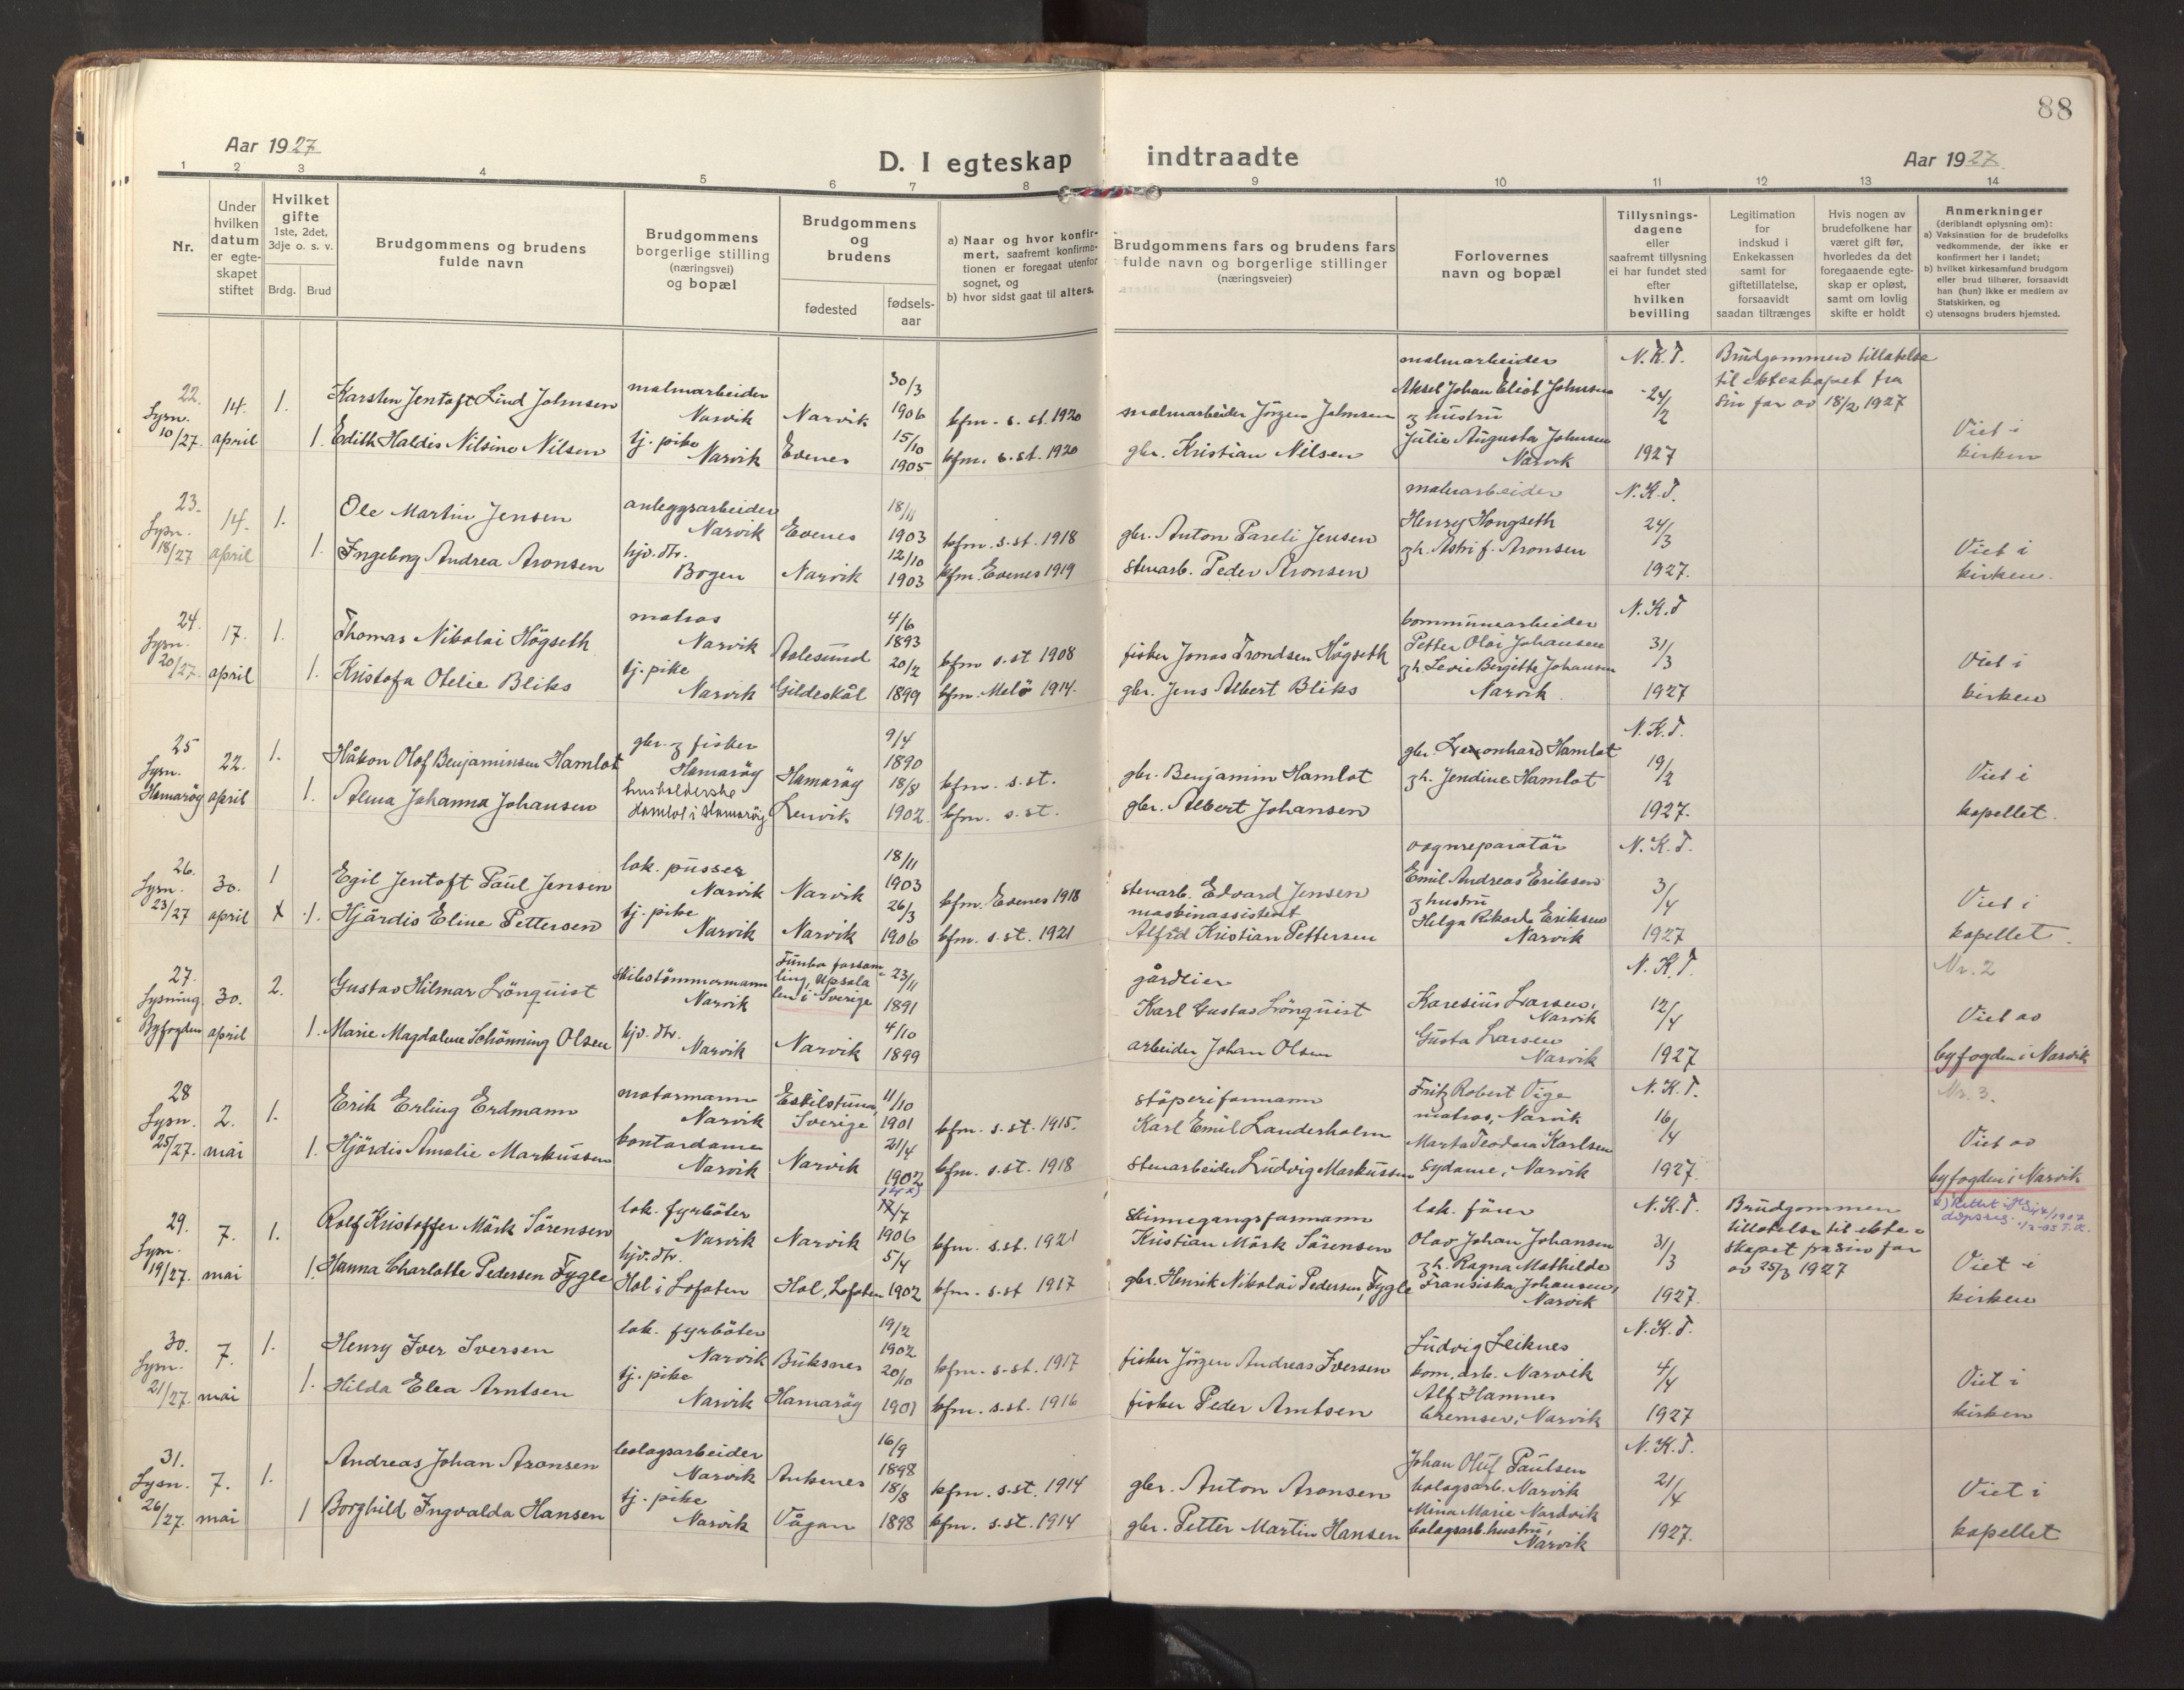 88
Aar 1927
D. I egteskap
indtraadte
Aar 1927
1 2 3 4 5 6 7 8 9 10 11 12 13 14
Nr.
Under
hvilken
datum
er egte-
skapet
stiftet
Hvilket
gifte
1ste, 2det,
3dje o. s. v.
Brdg. Brud
Brudgommens og brudens
fulde navn
Brudgommens
borgerlige stilling
(næringsvei)
og bopæl
Brudgommens
og
brudens
fødested
fødsels-
aar
a) Naar og hvor konfir-
mert, saafremt konfirma-
tionen er foregaat utenfor
sognet, og
b) hvor sidst gaat til alters.
Brudgommens fars og brudens fars
fulde navn og borgerlige stillinger
(næringsveier)
Forlovernes
navn og bopæl
Tillysnings-
dagene
eller
saafremt tillysning
ei har fundet sted
efter
hvilken
bevilling
Legitimation
for
indskud i
Enkekassen
samt for
giftetillatelse,
forsaavidt
saadan tiltrænges
Hvis nogen av
brudefolkene har
været gift før,
hvorledes da det
foregaaende egte-
skap er opløst,
samt om lovlig
skifte er holdt
Anmerkninger
(deriblandt oplysning om):
a) Vaksination for de brudefolks
vedkommende, der ikke er
konfirmert her i landet;
b) hvilket kirkesamfund brudgom
eller brud tilhører, forsaavidt
han (hun) ikke er medlem av
Statskirken, og
c) utensogns bruders hjemsted.
22.
Lysn.
10/27.
14.
april
1.
Karsten Jentoft Lind Johnsen
malmarbeider
Narvik
Narvik
30/3
1906
kfm. s. st. 1920
malmarbeider Jörgen Johnsen
1. Edith Haldis Nilsine Nilsen
tj. pike
Narvik
Evenes
15/10
1905
kfm. s. st. 1920
gbr. Kristian Nilsen
malmarbeider
Aksel Johan Eliot Johnsen
& hustru
Julie Augusta Johnsen
Narvik
N. K. T.
24/2
1927
Brudgommens tillatelse
til ekteskapet fra
sin far av 18/2 1927
Viet i
kirken
23.
Lysn.
18/27
14.
april
1.
Ole Martin Jensen
anleggsarbeider
Narvik
Evenes
18/11
1903
kfm. s. st. 1918
gbr. Anton Pareli Jensen
1. Ingeborg Andrea Aronsen
hjv. dtr.
Bogen
Narvik
12/10
1903
kfm. Evenes 1919
stenarb. Peder Aronsen
malmarbeider
Henry Hongseth
& h. Astri f. Aronsen
N. K. T.
24/3
1927.
Viet i
kirken.
24.
Lysn.
20/27.
17.
april
1.
Thomas Nikolai Högseth
matros
Narvik
Aalesund
4/6
1893
kfm s. st 1908
fisker Jonas Trondsen Högseth
1. Kristofa Otelie Bliks
tj. pike
Narvik
Gildeskål
20/2
1899
kfm. Melö 1914.
gbr. Jens Albert Bliks
kommunearbeider
Petter Olai Johansen
& h. Levie Bergitte Johansen
Narvik
N. K. T
31/3
1927
Viet i
kirken
25
Lysn.
Hamarøg
22.
april
1.
Håkon Olof Benjaminsen Hamlot
gbr. & fisker
Hamarög
Hamarög
9/4
1890
kfm. s. st.
gbr. Benjamin Hamlot
1. Alma Johanna Johansen
husholderske
Hamlot i Hamarøg
Lenvik
18/8
1902.
kfm. s. st.
gbr. Albert Johansen
gbr. Leonhard Hamlot
& h. Jendine Hamlot
N. K. T.
19/2
1927.
Viet i
kapellet.
26.
Lysn.
23/27
30.
april
1
Egil Jentoft Paul Jensen
lok. pusser
Narvik
Narvik
18/11
1903
kfm. Evenes 1918
stenarb. Edvard Jensen
1. Hjördis Eline Pettersen
tj. pike
Narvik
Narvik
26/3
1906
kfm. s. st. 1921
maskinassistent
Alfred Kristian Pettersen
vognreparatör
Emil Andreas Eriksen
& hustru
Helga Rikarda Eriksen
Narvik
N. K. T.
3/4
1927
Viet i
kapellet.
27.
Lysning
Byfogden
30.
april
2.
Gustav Hilmar Lönquist
skibstömmermann
Narvik
Funbo forsam-
ling, Upsala
len i Sverige
23/11
1891
gårdeier
Karl Gustav Lönquist
1. Marie Magdalene Schönning Olsen
hjv. dtr.
Narvik
Narvik
4/10
1899
arbeider Johan Olsen
Karesius Larsen,
Narvik
Gusta Larsen
Narvik
N. K. T.
12/4
1927
Nr. 2
Viet av
byfogden i Narvik
28
Lysn.
25/27.
2.
mai
1.
Erik Erling Erdmann
motormann
Narvik
Eskilstuna,
Sverige
11/10
1901
kfm. s. st. 1915.
stöperiformann
Karl Emil Landerholm
1. Hjördis Amalie Markussen
kontordame
Narvik
Narvik
21/4
1902
kfm. s. st. 1918
stenarbeider Ludvig Markussen
Fritz Robert Vige
matros, Narvik
Marta Teodora Karlsen
sydame, Narvik
N. K. T.
16/4
1927.
Nr. 3.
Viet av
byfogden i Narvik
29.
Lysn.
19/27.
7.
mai
1.
Rolf Kristoffer Mörk Sörensen
lok. fyrböter
Narvik
Narvik
14 x)
17/7
1906
kfm. s. st. 1921
skinnegangsformann
Kristian Mörk Sörensen
1. Hanna Charlotte Pedersen Fygle
hjv. dtr.
Hol i Lofoten
Hol, Lofoten
5/4
1902
kfm. s. st 1917
gbr. Henrik Nikolai Pedersen, Fygle
lok. förer
Olav Johan Johansen
& h. Ragna Mathilde
Fransiska Johansen,
Narvik
N. K. T.
31/3
1927.
Brudgommens
tillatelse til ekte-
skapet fra sin far
av 25/3 1927
x) Rettet
dåpsreg.
Viet i
kirken
30.
Lysn.
21/27.
7.
mai
1.
Henry Iver Iversen
lok. fyrböter
Narvik
Buksnes
19/2
1902
kfm. s. st. 1917
fisker Jörgen Andreas Iversen
1. Hilda Elea Arntsen
tj. pike
Narvik
Hamarög
20/10
1901
kfm. s. st. 1916
fisker Peder Arntsen
Ludvig Leiknes
kom. arb. Narvik
Alf Hamnes
bremser, Narvik
N. K. T.
4/4
1927
Viet i
kirken
31.
Lysn.
26/27.
7.
mai
1.
Andreas Johan Aronsen
bolagsarbeider
Narvik
Ankenes
16/9
1898
kfm. s. st. 1914
gbr. Anton Aronsen
1 Borghild Ingvalda Hansen
tj. pike
Narvik
Vågan
18/8
1898
kfm. s. st. 1914
gbr. Petter Martin Hansen
Johan Oluf Paulsen
bolagsarb. Narvik
Mina Marie Nordvik
bolagsarb. hustru,
Narvik
N. K. T.
21/4
1927.
Viet i
kapellet